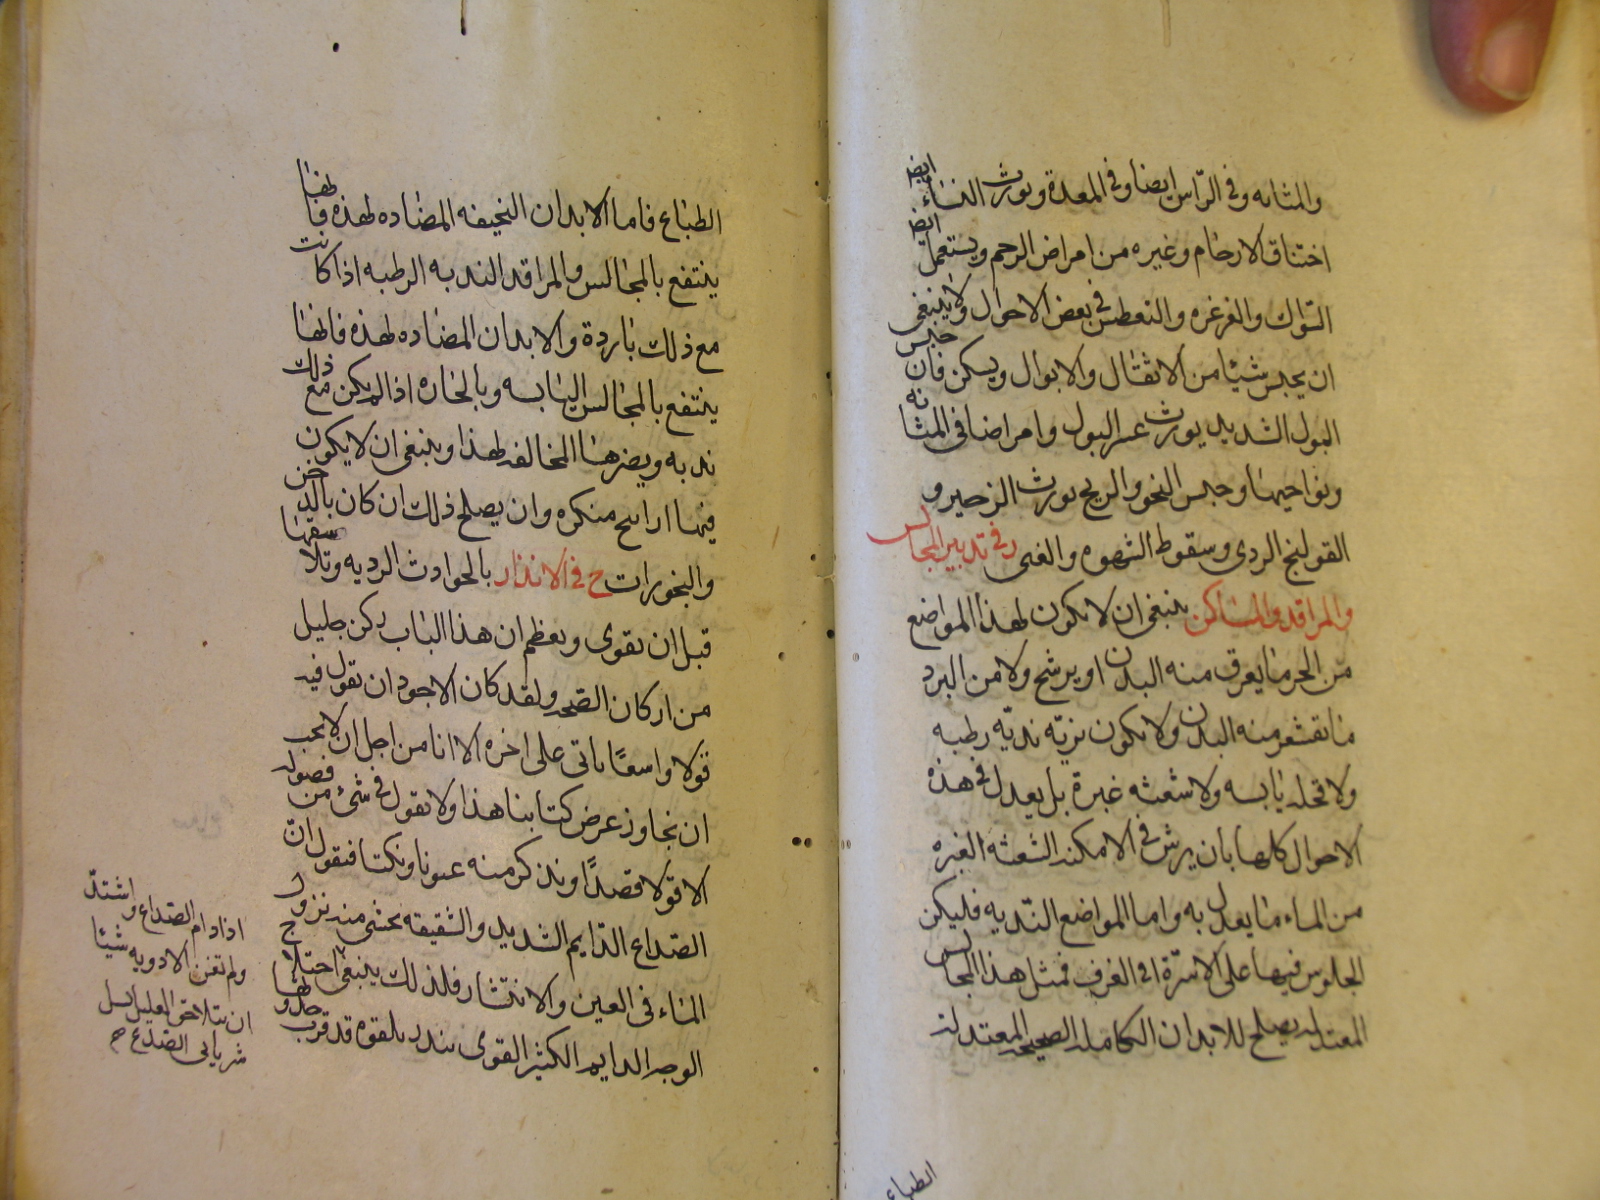 والمثانه وفي الرّأس ايضا وفي المعدة ويورث النساء ايضا
اختناق الارحام وغيره من امراض الرحم ويستعمل ايضا
السّواك والغرغره والتعطس في بعض الاحوال ولا ينبغى
ان يحبس شيئا من الاثفال والابوال ويسكن فان حبس
البول الشديد يورث عسر البول وامراضا فى المثانه
ونواحيها وحبس النجو والريح يورث الزحير و
القولنج الردى وسقوط الشهوه والغى ر فى تدبير المجالس
والمراقد والمساكن ينبغى ان لا يكون لهذا المواضع
من الحر ما يعرق منه البدن او يرشح ولا من البرد
ما تقشعر منه البدن ولا يكون نزيّه نديّه رطبه
ولا قحله يابسه ولا شعثه غبرة بل يعدل فى هذه
الاحوال كلها بان يرش فى الامكنه الشعثه الغبره
من الماء ما يعدل به واما المواضع النّديه فليكن
الجلوس فيها على الاسرّة او فى الغرف فمثل هذا المجالس
المعتدله يصلح للابدان الكامله الصحيحه المعتدله
الطباع
الطباع فاما الابدان النحيفه المضاده لهذه فانها
ينتفع بالمجالس والمراقد النديه الرطبه اذا كانت
مع ذلك باردة والابدان المضاده لهذه فانها
ينتفع بالمجالس اليابسه وبالحاره اذا لم يكن مع ذلك
نديه ويضرها المخالفه لهذا وينبغى ان لا يكون
فيها اراييح منكره وان يصلح ذلك ان كان بالدخن
والبخورات ح فى الانذار بالحوادث الرديه وتلاحقها
قبل ان تقوى وتعظم ان هذا الباب ركن جليل
من اركان الصحه ولقد كان الاجود ان نقول فيه
قولا واسعًا ياتى على اخره الا انا من اجل ان لا يجب
ان نجاوز عرض كتابنا هذا ولا نقول فى شىء من فصوله
الا قولا قصدًا ونذكر منه عيونا ونكتا فنقول انّ
الصّداع الدّايم الشديد والشقيقه يخشى منه نزول
الماء فى العين والانتشار فلذلك ينبغى
الوجه الدايم الكثير القوى ينذر بلقوه قد قرب
اذا دام الصّداع واشتدّ
ولم تغن الادويه شيئا
ان
شريانى الصّدغ